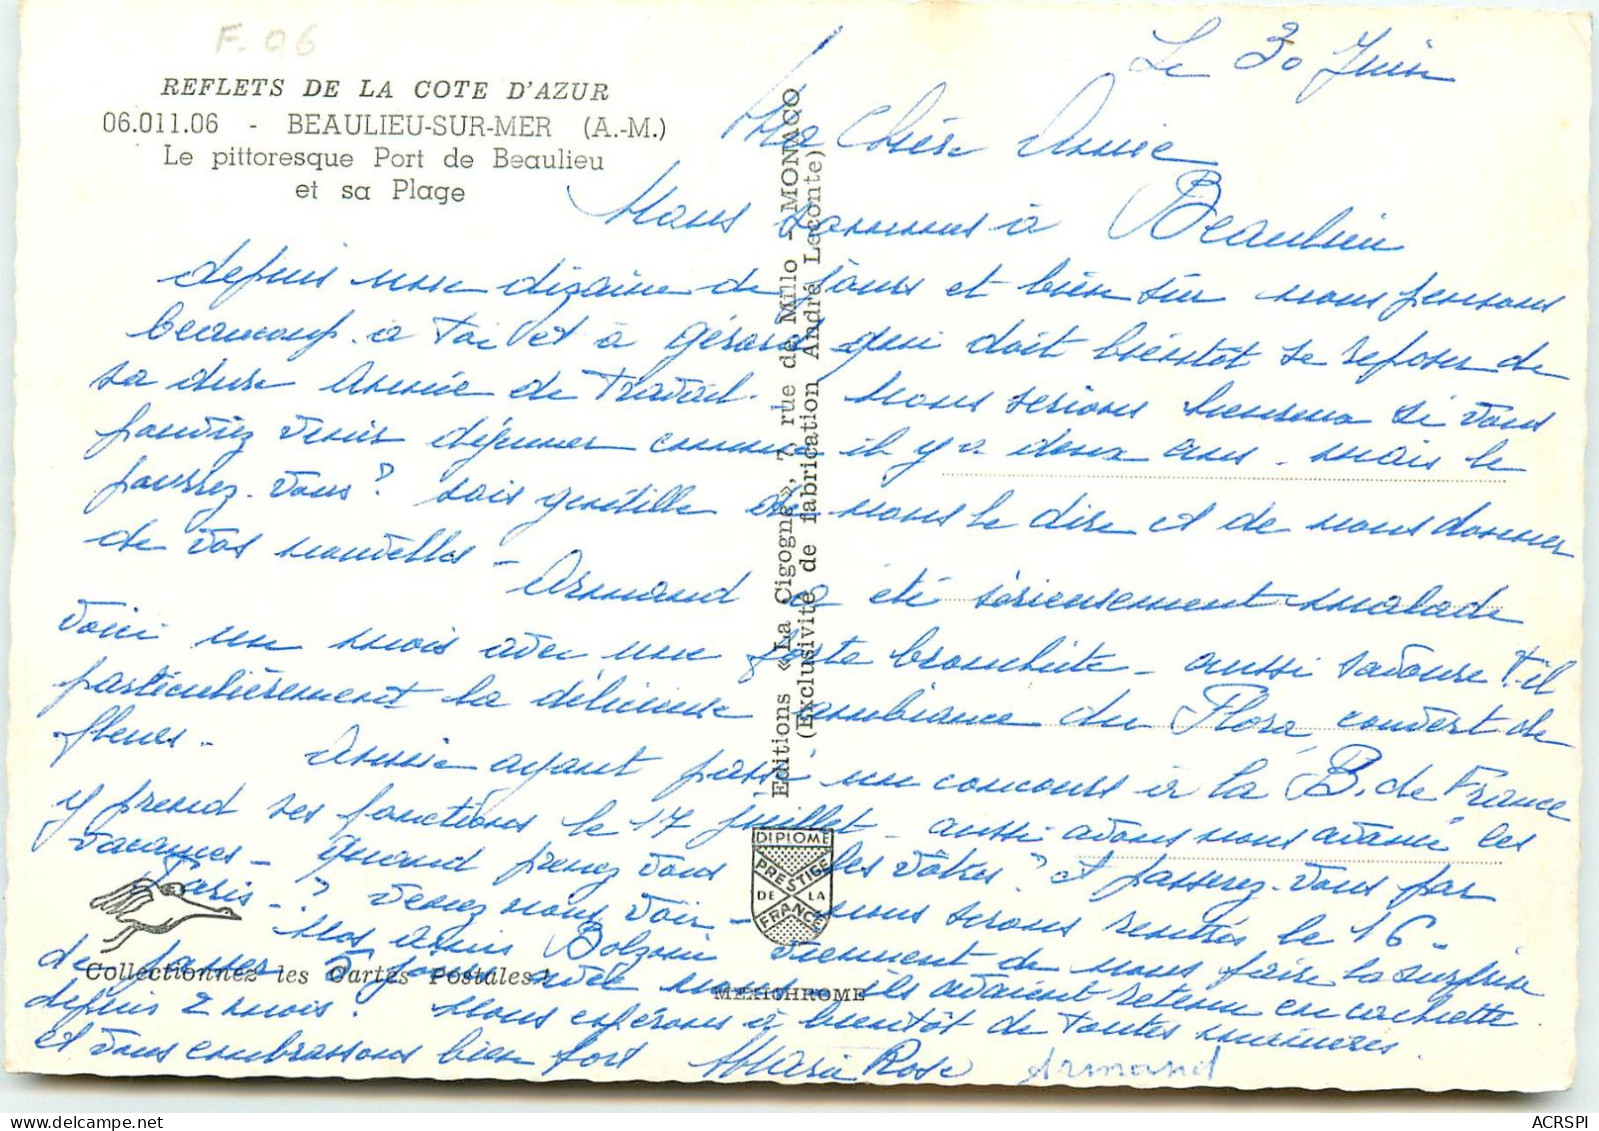 F. 06
REFLETS DE LA COTE D'AZUR
06.011.06 - BEAULIEU-SUR-MER (A.-M.)
Le pittoresque Port de Beaulieu
et sa Plage
Le 30 Juin
Ma Chère Annie
Nous sommes à Beaulieu
depuis une dizaine de jours et bien sûr nous pensons
beaucoup à toi et à Gérard qui doit bientôt se reposer de
sa dure année de travail. Nous serions heureux si vous
pouviez venir déjeuner comme il y a deux ans - mais le
pourrez-vous? sois gentille de nous le dire et de nous donner
de vos nouvelles -
Armand a été sérieusement malade
voici un mois avec une forte bronchite - aussi savoure t-il
particulièrement la délicieuse ambiance du Flora, couvert de
fleurs. Annie ayant passé un concours à la B. de France
y prend ses fonctions le 17 juillet - aussi avons nous avancé les
vacances - quand prenez vous les vôtres? et passerez-vous par
Paris - ? venez nous voir - nous serons rentrés le 16 -
Nos amis Bolzoni viennent de nous faire la surprise
de passer 5 jours avec nous - ils avaient retenu en cachette
depuis 2 mois! Nous espérons à bientôt de toutes manières.
et vous embrassons bien fort Marie Rose Armand
Editions «La Cigogne», 7, rue de Millo - MONACO
(Exclusivité de fabrication André Leconte)
DIPLOME
PRESTIGE
DE LA
FRANCE
Collectionnez les Cartes Postales!
MEXICHROME
ACRSPI